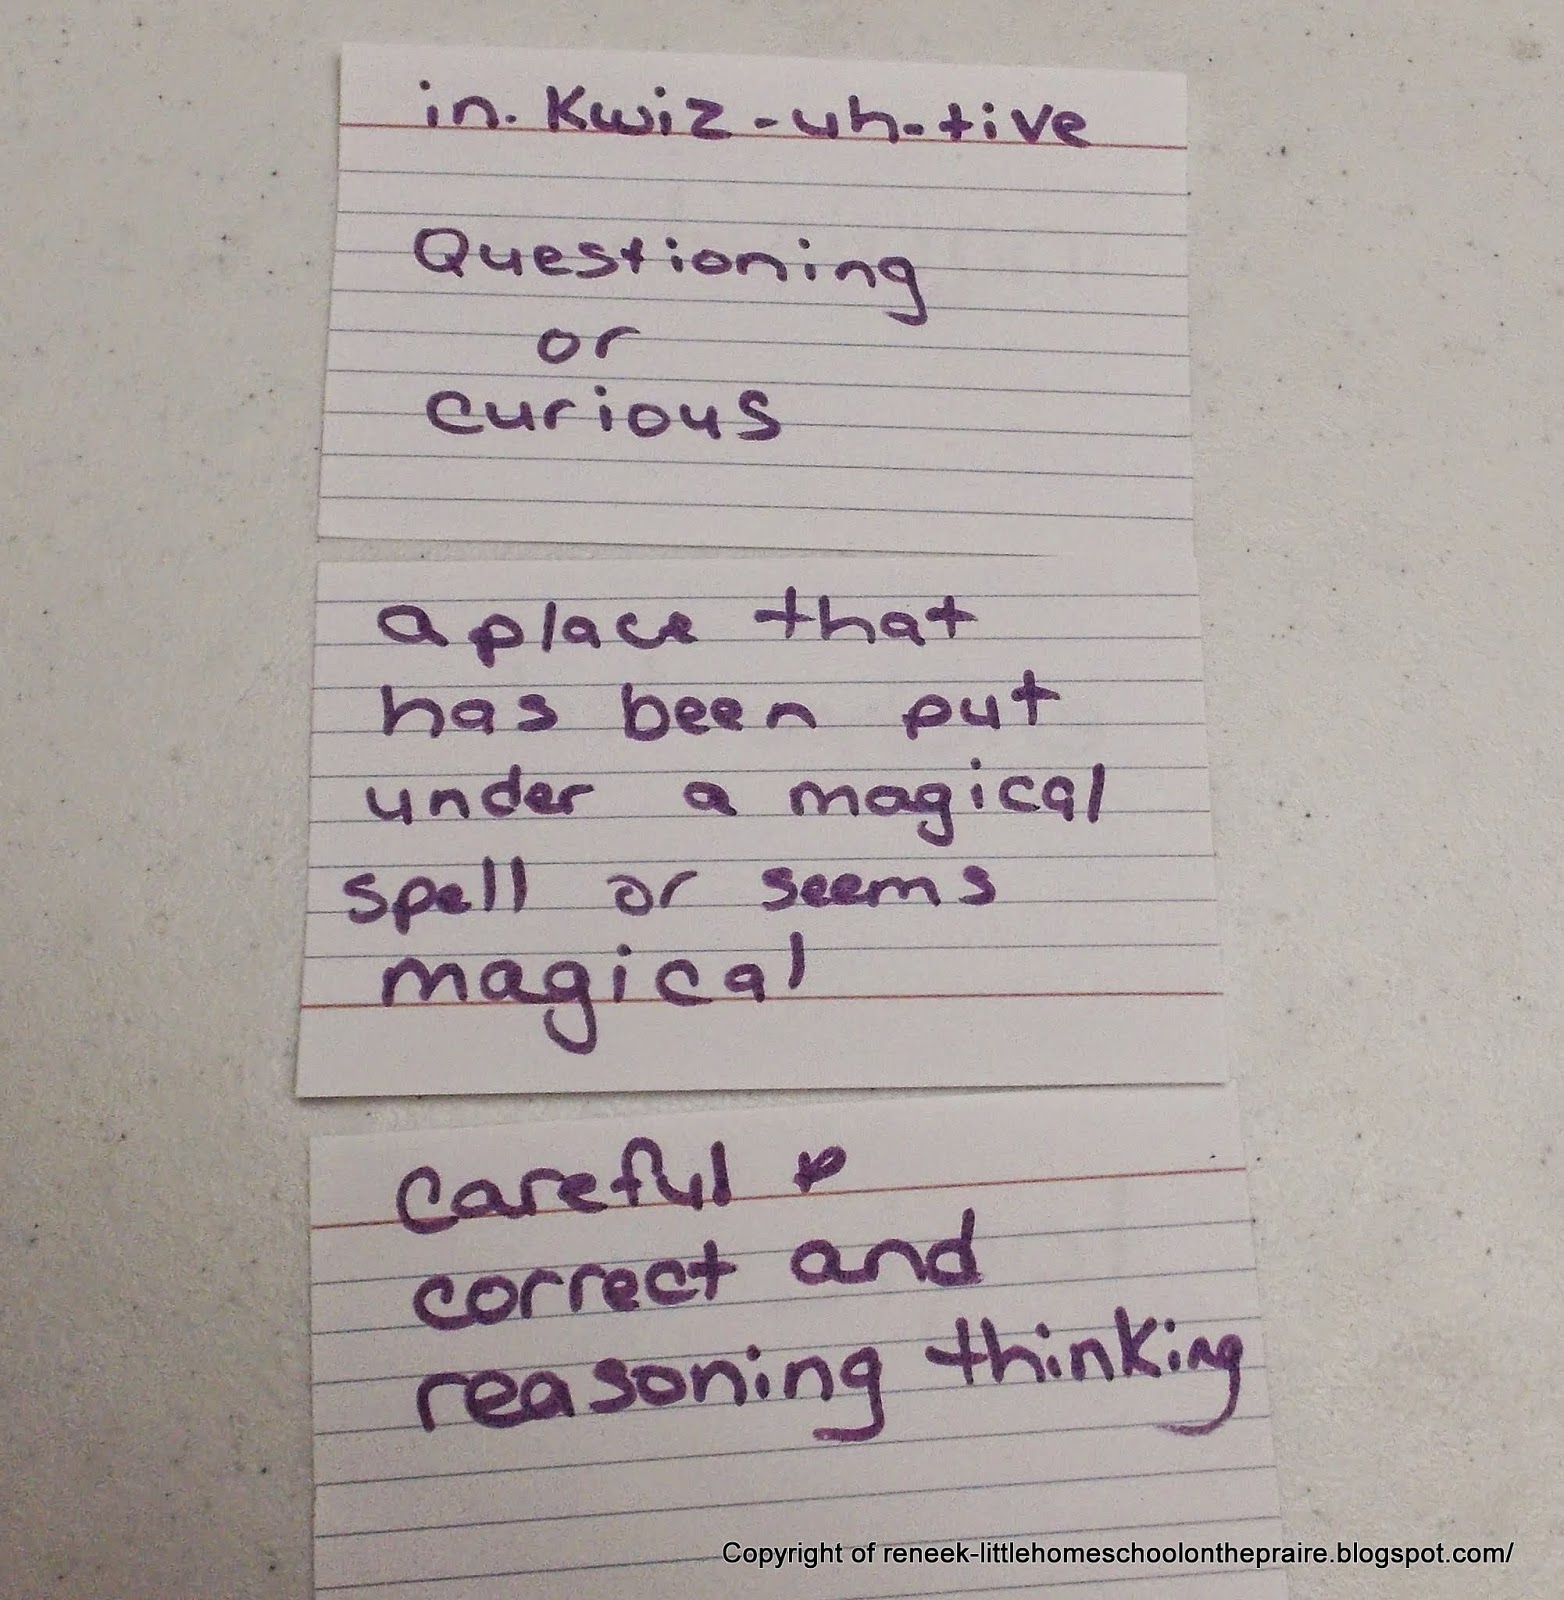 in. Kwiz-uh-tive
Questioning
or
curious
a place that
has been put
under a magical
spell or seems
magical
careful
correct and
reasoning thinking
Copyright of reneek-littlehomeschoolonthepraire.blogspot.com/